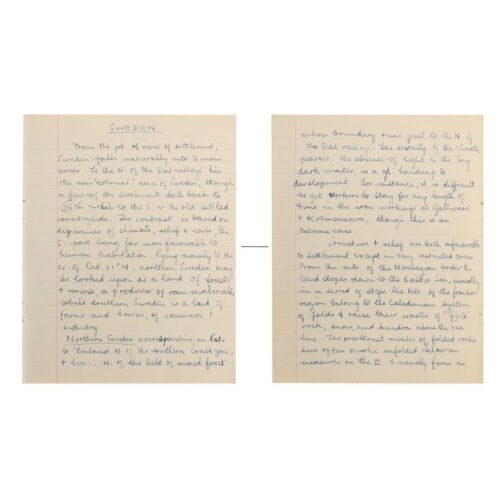 SWEDEN.
From the pt. of view of settlement,
Sweden falls naturally into 2 main
areas. To the N. of the Dal valleys lies
the new 'colonial' area of Sweden, though
a few of the settlements date back to
15th whilst to the S is the old settled
countryside. The contrast is based on
differences of climate, relief & soils, the
S. part being far more favourable to
human habitation. Lying mainly to the
N. of lat. 61° N, northern Sweden may
be looked upon as a land of forests
& mines, a producer of raw materials,
while southern Sweden is a land of
farms and towns, of commerce &
industry.
Northern Sweden corresponding in lat.
to Finland N. of the southern coast zone,
& lies N. of the belt of mixed forest
whose boundary runs just to the N. of
the Dal valleys. The severity of the climate,
partic. the absence of light in the long
dark winter, is a gt. handicap to
development. For instance, it is difficult
to get workers to stay for any length of
time in the iron workings at Gällivare
& Kirunavaara, though this is an
extreme case.
Structure & relief are both unfavourable
to settlement except in very restricted areas.
From the mts. of the Norwegian border the
land slopes down to the Baltic Sea, usually
in a series of steps. The Mts. of the frontier
region belong to the Caledonian system
of folds & raise their wastes of 'fjeld'
rock, snow, and tundra above the tree
line. The overthrust masses of folded rocks
here often overlie unfolded Silurian
measures on the E. & usually form an